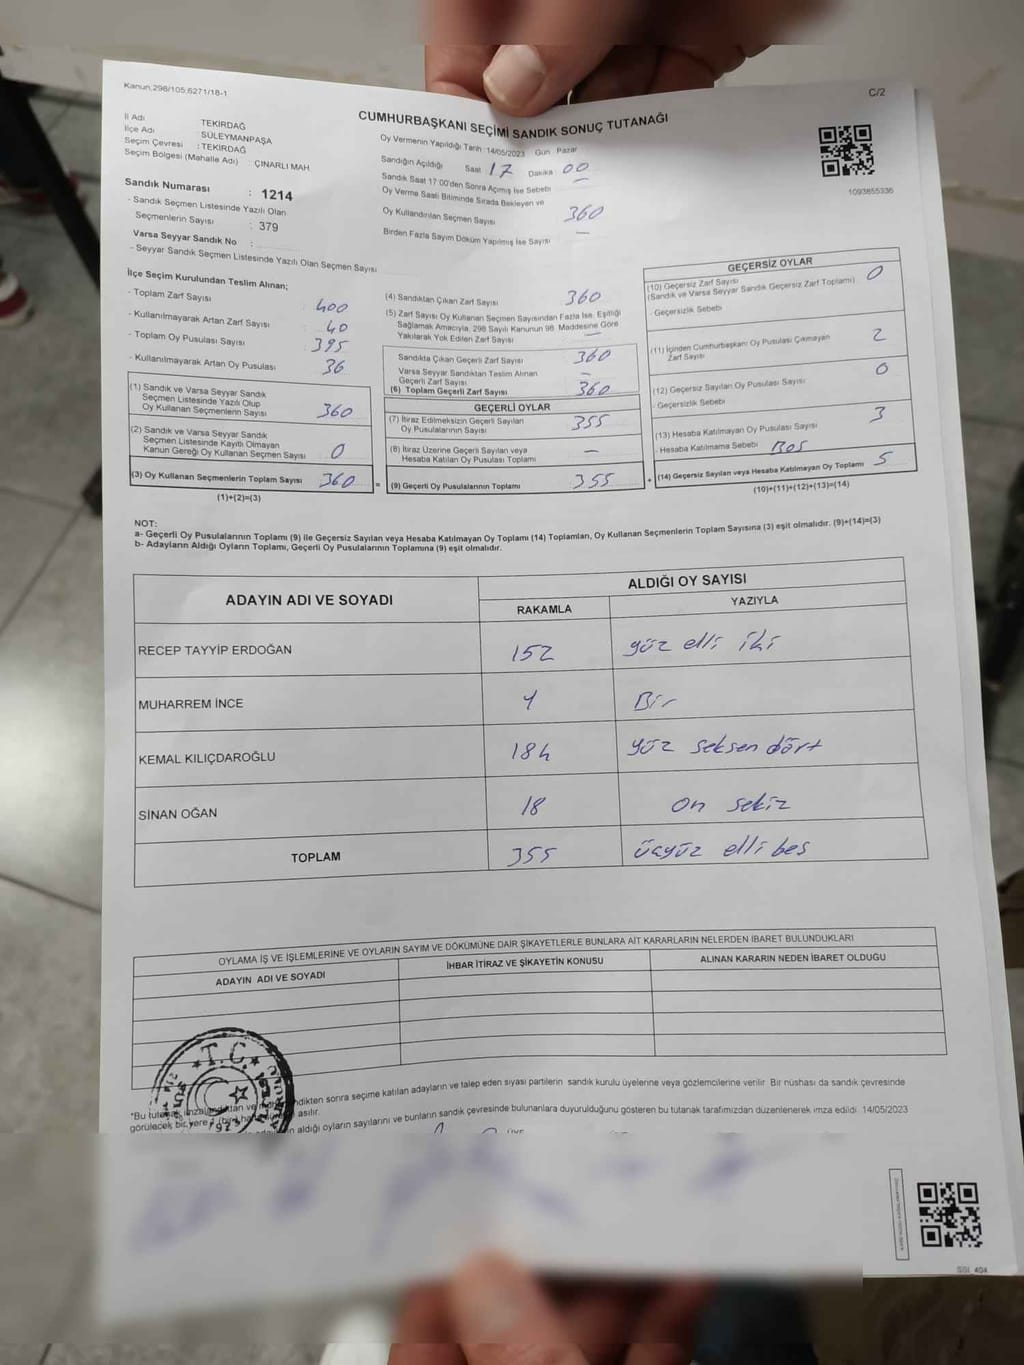 Kanun,298/105,6271/18-1
C/2
CUMHURBAŞKANI SEÇİMİ SANDIK SONUÇ TUTANAĞI
İl Adı : TEKİRDAĞ
İlçe Adı : SÜLEYMANPAŞA
Seçim Çevresi : TEKİRDAĞ
Seçim Bölgesi (Mahalle Adı) : ÇINARLI MAH
Sandık Numarası : 1214
- Sandık Seçmen Listesinde Yazılı Olan
Seçmenlerin Sayısı : 379
Varsa Seyyar Sandık No :
- Seyyar Sandık Seçmen Listesinde Yazılı Olan Seçmen Sayısı
Oy Vermenin Yapıldığı Tarih 14/05/2023 Gün Pazar
Sandığın Açıldığı Saat 17 Dakika 00
Sandık Saat 17 00'den Sonra Açılmış İse Sebebi —
Oy Verme Saati Bitiminde Sırada Bekleyen ve
Oy Kullandırılan Seçmen Sayısı 360
Birden Fazla Sayım Döküm Yapılmış İse Sayısı —
1093855336
İlçe Seçim Kurulundan Teslim Alınan;
- Toplam Zarf Sayısı : 400
- Kullanılmayarak Artan Zarf Sayısı : 40
- Toplam Oy Pusulası Sayısı : 395
- Kullanılmayarak Artan Oy Pusulası : 36
(1) Sandık ve Varsa Seyyar Sandık
Seçmen Listesinde Yazılı Olup
Oy Kullanan Seçmenlerin Sayısı : 360
(2) Sandık ve Varsa Seyyar Sandık
Seçmen Listesinde Kayıtlı Olmayan
Kanun Gereği Oy Kullanan Seçmen Sayısı : 0
(3) Oy Kullanan Seçmenlerin Toplam Sayısı : 360 =
(1)+(2)=(3)
(4) Sandıktan Çıkan Zarf Sayısı 360
(5) Zarf Sayısı Oy Kullanan Seçmen Sayısından Fazla İse, Eşitliği
Sağlamak Amacıyla, 298 Sayılı Kanunun 98. Maddesine Göre
Yakılarak Yok Edilen Zarf Sayısı —
Sandıkta Çıkan Geçerli Zarf Sayısı 360
Varsa Seyyar Sandıktan Teslim Alınan
Geçerli Zarf Sayısı —
(6) Toplam Geçerli Zarf Sayısı 360
GEÇERLİ OYLAR
(7) İtiraz Edilmeksizin Geçerli Sayılan
Oy Pusulalarının Sayısı 355
(8) İtiraz Üzerine Geçerli Sayılan veya
Hesaba Katılan Oy Pusulası Toplamı —
(9) Geçerli Oy Pusulalarının Toplamı 355 +
GEÇERSİZ OYLAR
(10) Geçersiz Zarf Sayısı
(Sandık ve Varsa Seyyar Sandık Geçersiz Zarf Toplamı) 0
- Geçersizlik Sebebi
(11) İçinden Cumhurbaşkanı Oy Pusulası Çıkmayan
Zarf Sayısı 2
(12) Geçersiz Sayılan Oy Pusulası Sayısı 0
- Geçersizlik Sebebi
(13) Hesaba Katılmayan Oy Pusulası Sayısı 3
- Hesaba Katılmama Sebebi Boş
(14) Geçersiz Sayılan veya Hesaba Katılmayan Oy Toplamı 5
(10)+(11)+(12)+(13)=(14)
NOT:
a- Geçerli Oy Pusulalarının Toplamı (9) ile Geçersiz Sayılan veya Hesaba Katılmayan Oy Toplamı (14) Toplamları, Oy Kullanan Seçmenlerin Toplam Sayısına (3) eşit olmalıdır. (9)+(14)=(3)
b- Adayların Aldığı Oyların Toplamı, Geçerli Oy Pusulalarının Toplamına (9) eşit olmalıdır.
ADAYIN ADI VE SOYADI
ALDIĞI OY SAYISI
RAKAMLA YAZIYLA
RECEP TAYYİP ERDOĞAN 152 yüz elli iki
MUHARREM İNCE 1 Bir
KEMAL KILIÇDAROĞLU 184 yüz seksen dört
SİNAN OĞAN 18 on sekiz
TOPLAM 355 üçyüz elli beş
OYLAMA İŞ VE İŞLEMLERİNE VE OYLARIN SAYIM VE DÖKÜMÜNE DAİR ŞİKAYETLERLE BUNLARA AİT KARARLARIN NELERDEN İBARET BULUNDUKLARI
ADAYIN ADI VE SOYADI İHBAR İTİRAZ VE ŞİKAYETİN KONUSU ALINAN KARARIN NEDEN İBARET OLDUĞU
T.C.
*Bu tutanak imzalandıktan ve ndikten sonra seçime katılan adayların ve talep eden siyasi partilerin sandık kurulu üyelerine veya gözlemcilerine verilir Bir nüshası da sandık çevresinde
görülecek bir yere asılır.
aldığı oyların sayılarını ve bunların sandık çevresinde bulunanlara duyurulduğunu gösteren bu tutanak tarafımızdan düzenlenerek imza edildi 14/05/2023
SSI 404